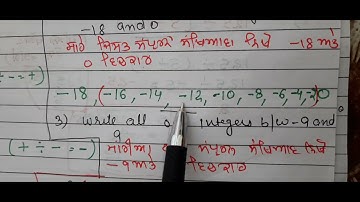 -18 and 0
ਸਾਰੇ ਜਿਸਤ ਸੰਪੂਰਨ ਸੰਖਿਆਵਾਂ ਲਿਖੋ -18 ਅਤੇ
0 ਵਿਚਕਾਰ
-18 (-16, -14, -12, -10, -8, -6, -4, -2) 0
3) write all integers b/w -9 and
9
(+ ÷ - = -) ਸੰਪੂਰਨ ਸੰਖਿਆਵਾਂ ਲਿਖੋ
-9 ਅਤੇ ਵਿਚਕਾਰ